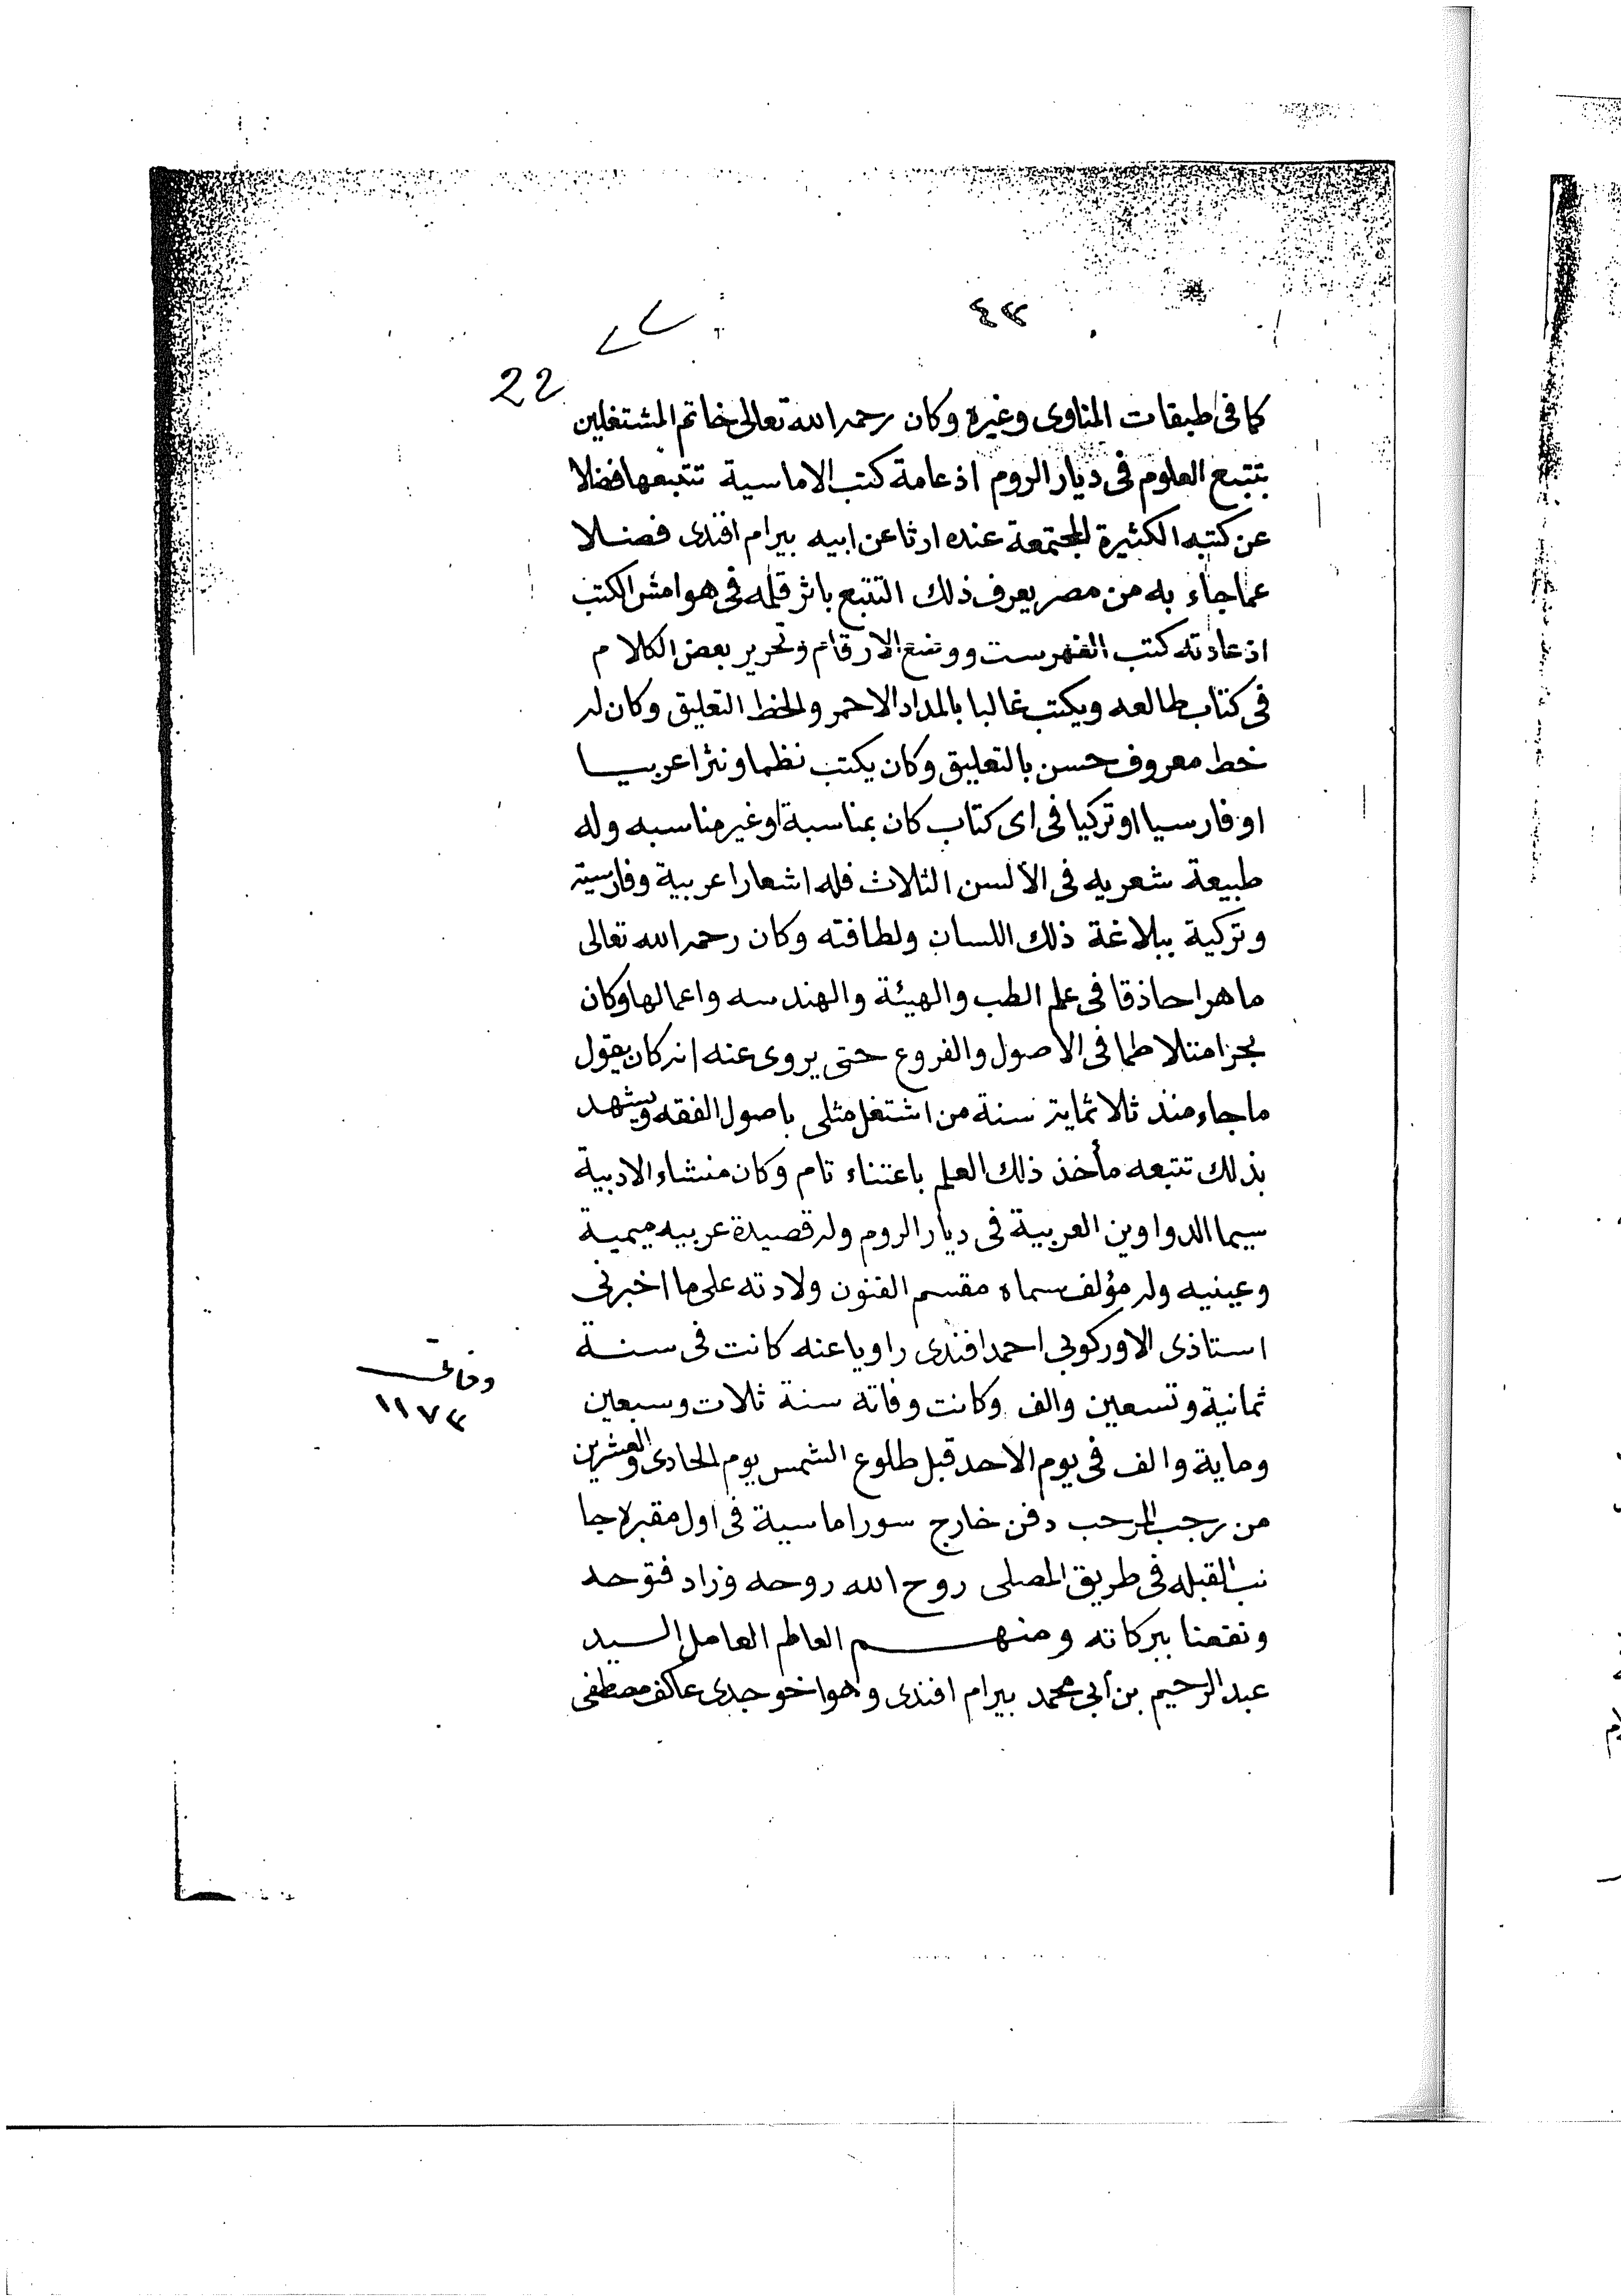 ٤٣
22
كما فى طبقات المناوى وغيره وكان رحمه الله تعالى خاتم المشتغلين
بتتبع العلوم فى ديار الروم اذ عامة كتب الاماسية تتبعها فضلا
عن كتبه الكثيرة المجتمعة عنده ارثا عن ابيه بيرام افندى فضلا
عما جاء به من مصر يعرف ذلك التتبع باثر قلمه فى هوامش الكتب
اذ عادته كتب الفهرست ووضع الارقام وتحرير بعض الكلام
فى كتاب طالعه ويكتب غالبا بالمداد الاحمر والخط التعليق وكان له
خط معروف حسن بالتعليق وكان يكتب نظما ونثرا عربيا
او فارسيا او تركيا فى اى كتاب كان بمناسبة او غير مناسبه وله
طبيعة شعريه فى الألسن الثلاث فله اشعارا عربية وفارسية
وتركية ببلاغة ذلك اللسان ولطافته وكان رحمه الله تعالى
ماهرا حاذقا فى علم الطب والهيئة والهندسه واعمالها وكان
بحرا متلاطما فى الاصول والفروع حتى يروى عنه انه كان يقول
ما جاء منذ ثلاثماية سنة من اشتغل مثلى باصول الفقه ويشهد
بذلك تتبعه مأخذ ذلك العلم باعتناء تام وكان منشاء الادبية
سيما الدواوين العربية فى ديار الروم وله قصيدة عربيه ميمية
وعينيه وله مؤلف سماه مقسم الفنون ولادته على ما اخبرنى
استاذى الاوركوبى احمد افندى راويا عنه كانت فى سنة
ثمانية وتسعين والف وكانت وفاته سنة ثلاث وسبعين
وفاتى
١١٧٣
وماية والف فى يوم الاحد قبل طلوع الشمس يوم الحادى والعشرين
من رجب المرجب دفن خارج سور اماسية فى اول مقبرة جا
نب القبله فى طريق المصلى روح الله روحه وزاد فتوحه
ونفعنا ببركاته ومنهم العالم العامل السيد
عبد الرحيم بن أبى محمد بيرام افندى وهو اخو جدى عاكف مصطفى